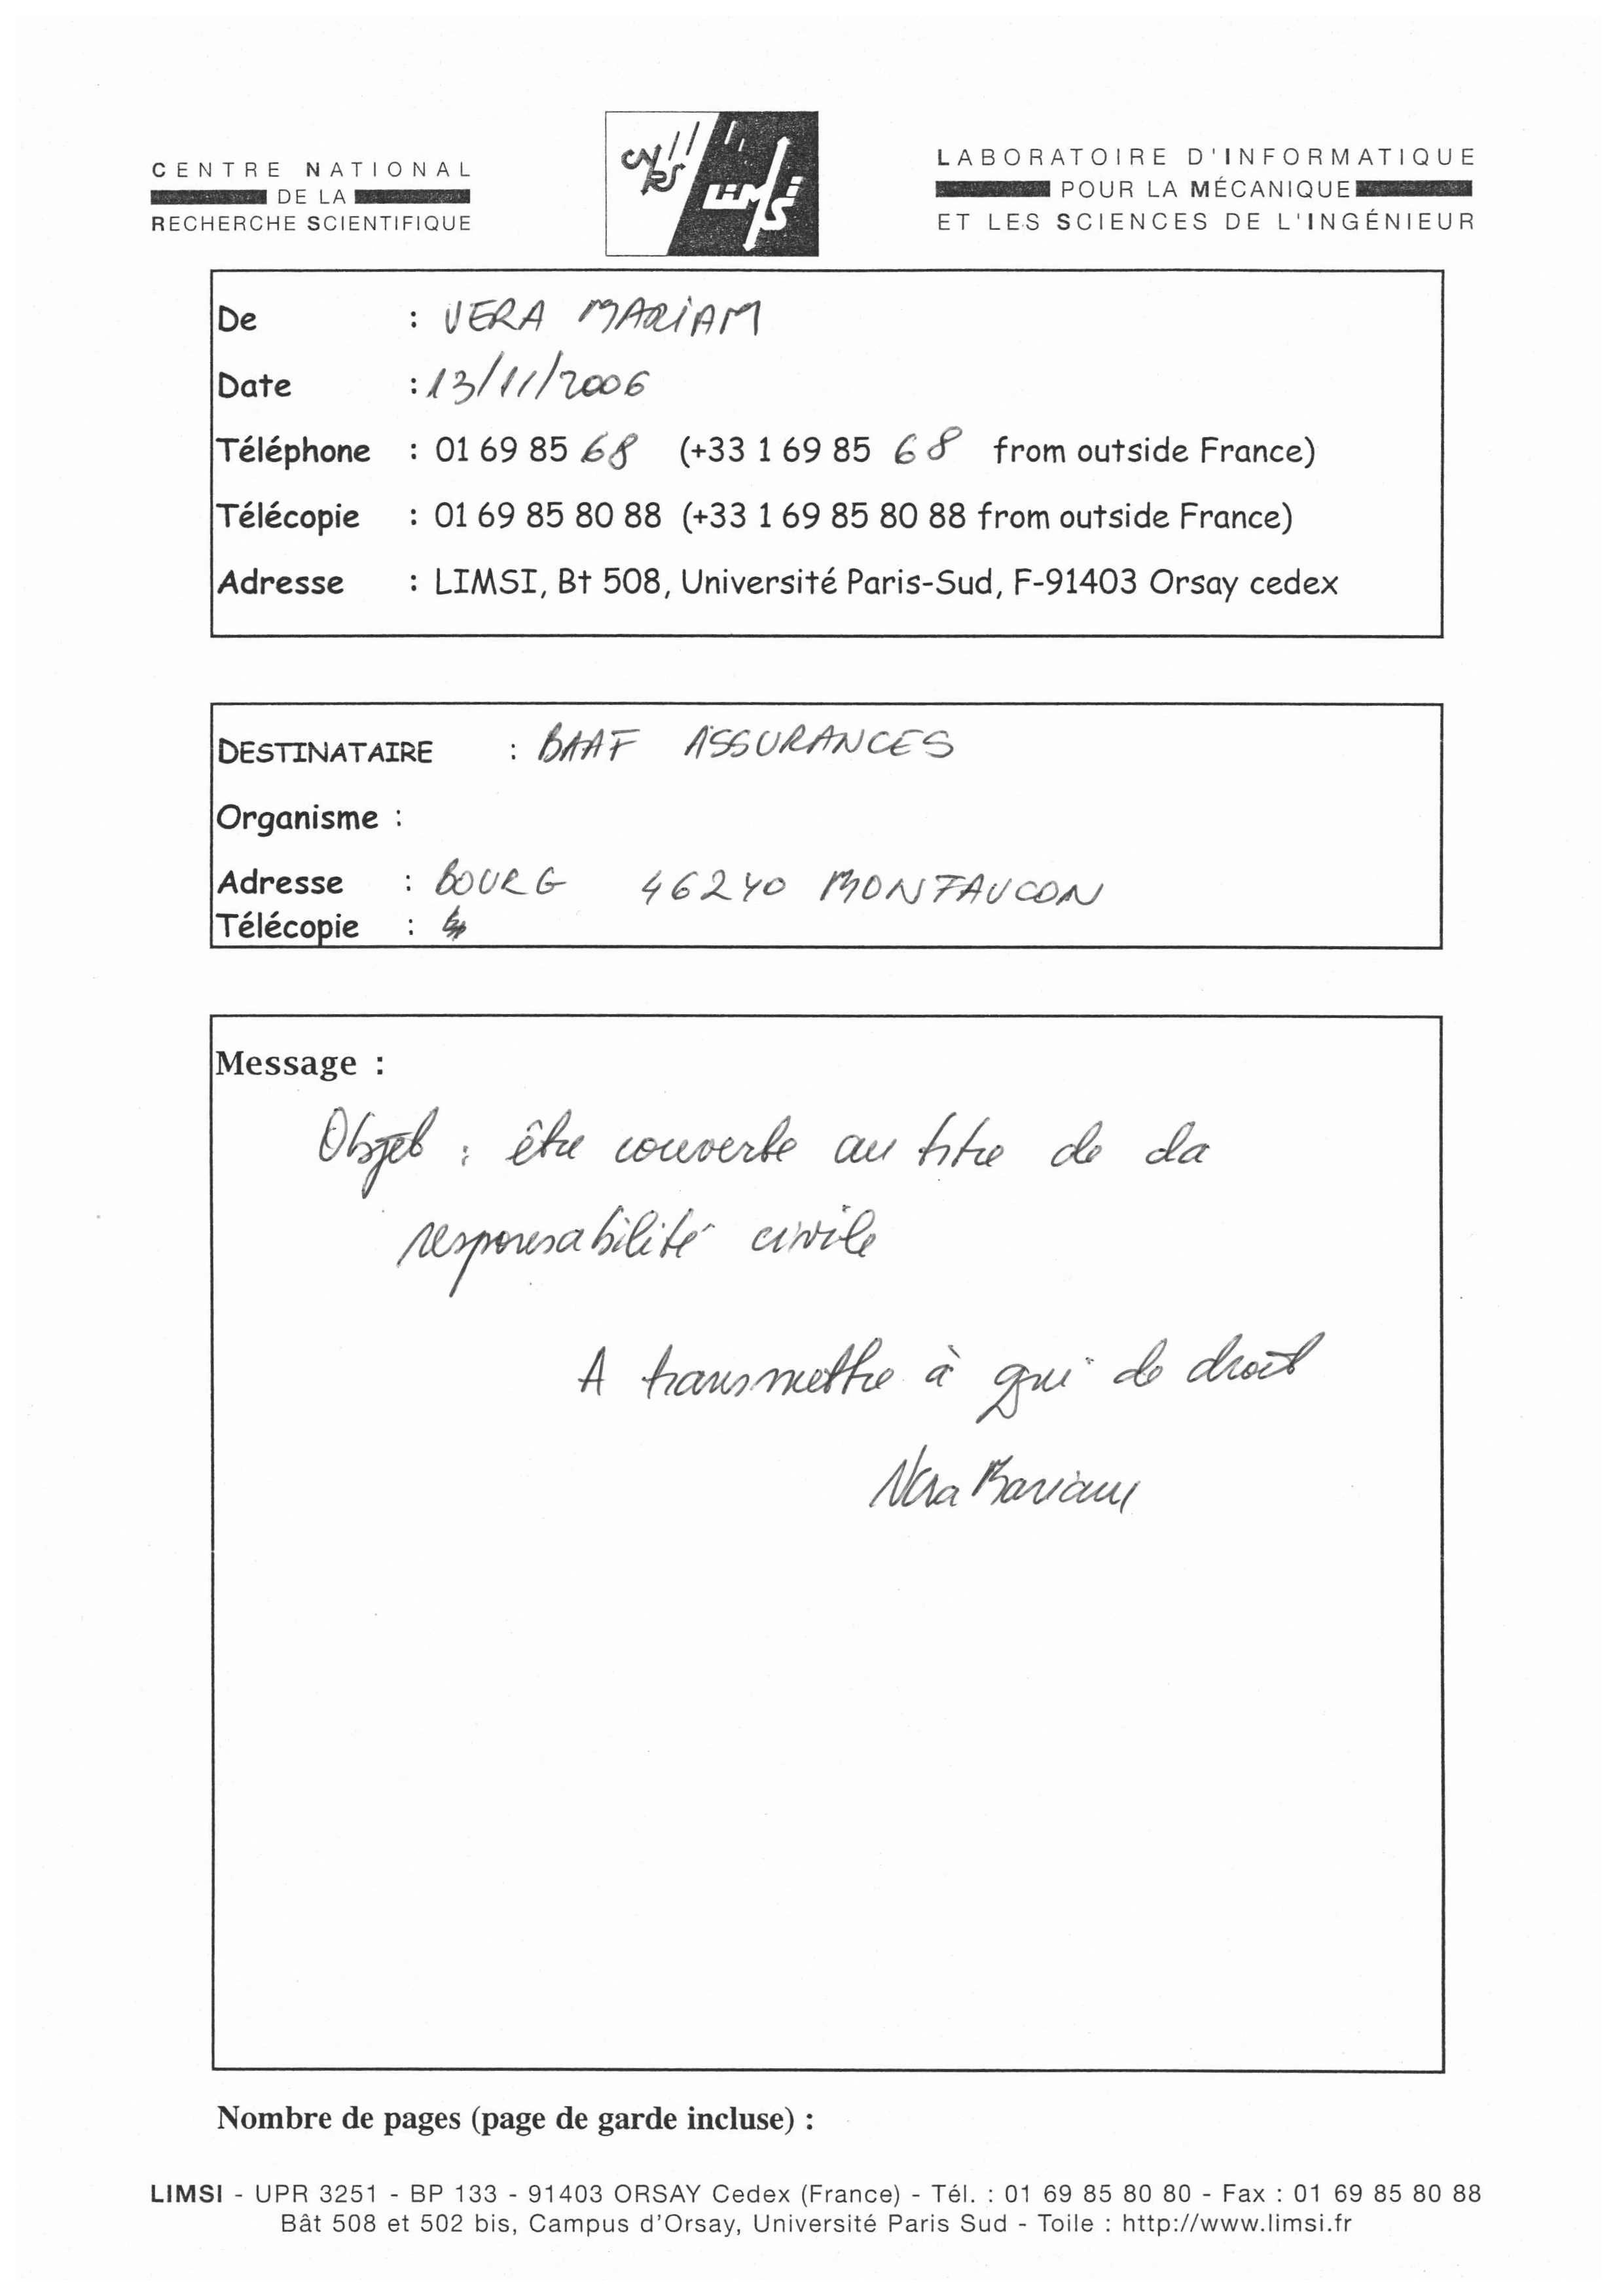 CENTRE NATIONAL
DE LA
RECHERCHE SCIENTIFIQUE
CNRS
LIMSI
LABORATOIRE D'INFORMATIQUE
POUR LA MÉCANIQUE
ET LES SCIENCES DE L'INGÉNIEUR
De : VERA MARIAM
Date : 13/11/2006
Téléphone : 01 69 85 68 (+33 1 69 85 68 from outside France)
Télécopie : 01 69 85 80 88 (+33 1 69 85 80 88 from outside France)
Adresse : LIMSI, Bt 508, Université Paris-Sud, F-91403 Orsay cedex
DESTINATAIRE : BAAF ASSURANCES
Organisme :
Adresse : BOURG 46240 MONTFAUCON
Télécopie :
Message :
Objet : être couverte au titre de da
responsabilité civile
A transmettre à qui de droit
Vera Mariam
Nombre de pages (page de garde incluse) :
LIMSI - UPR 3251 - BP 133 - 91403 ORSAY Cedex (France) - Tél. : 01 69 85 80 80 - Fax : 01 69 85 80 88
Bât 508 et 502 bis, Campus d'Orsay, Université Paris Sud - Toile : http://www.limsi.fr